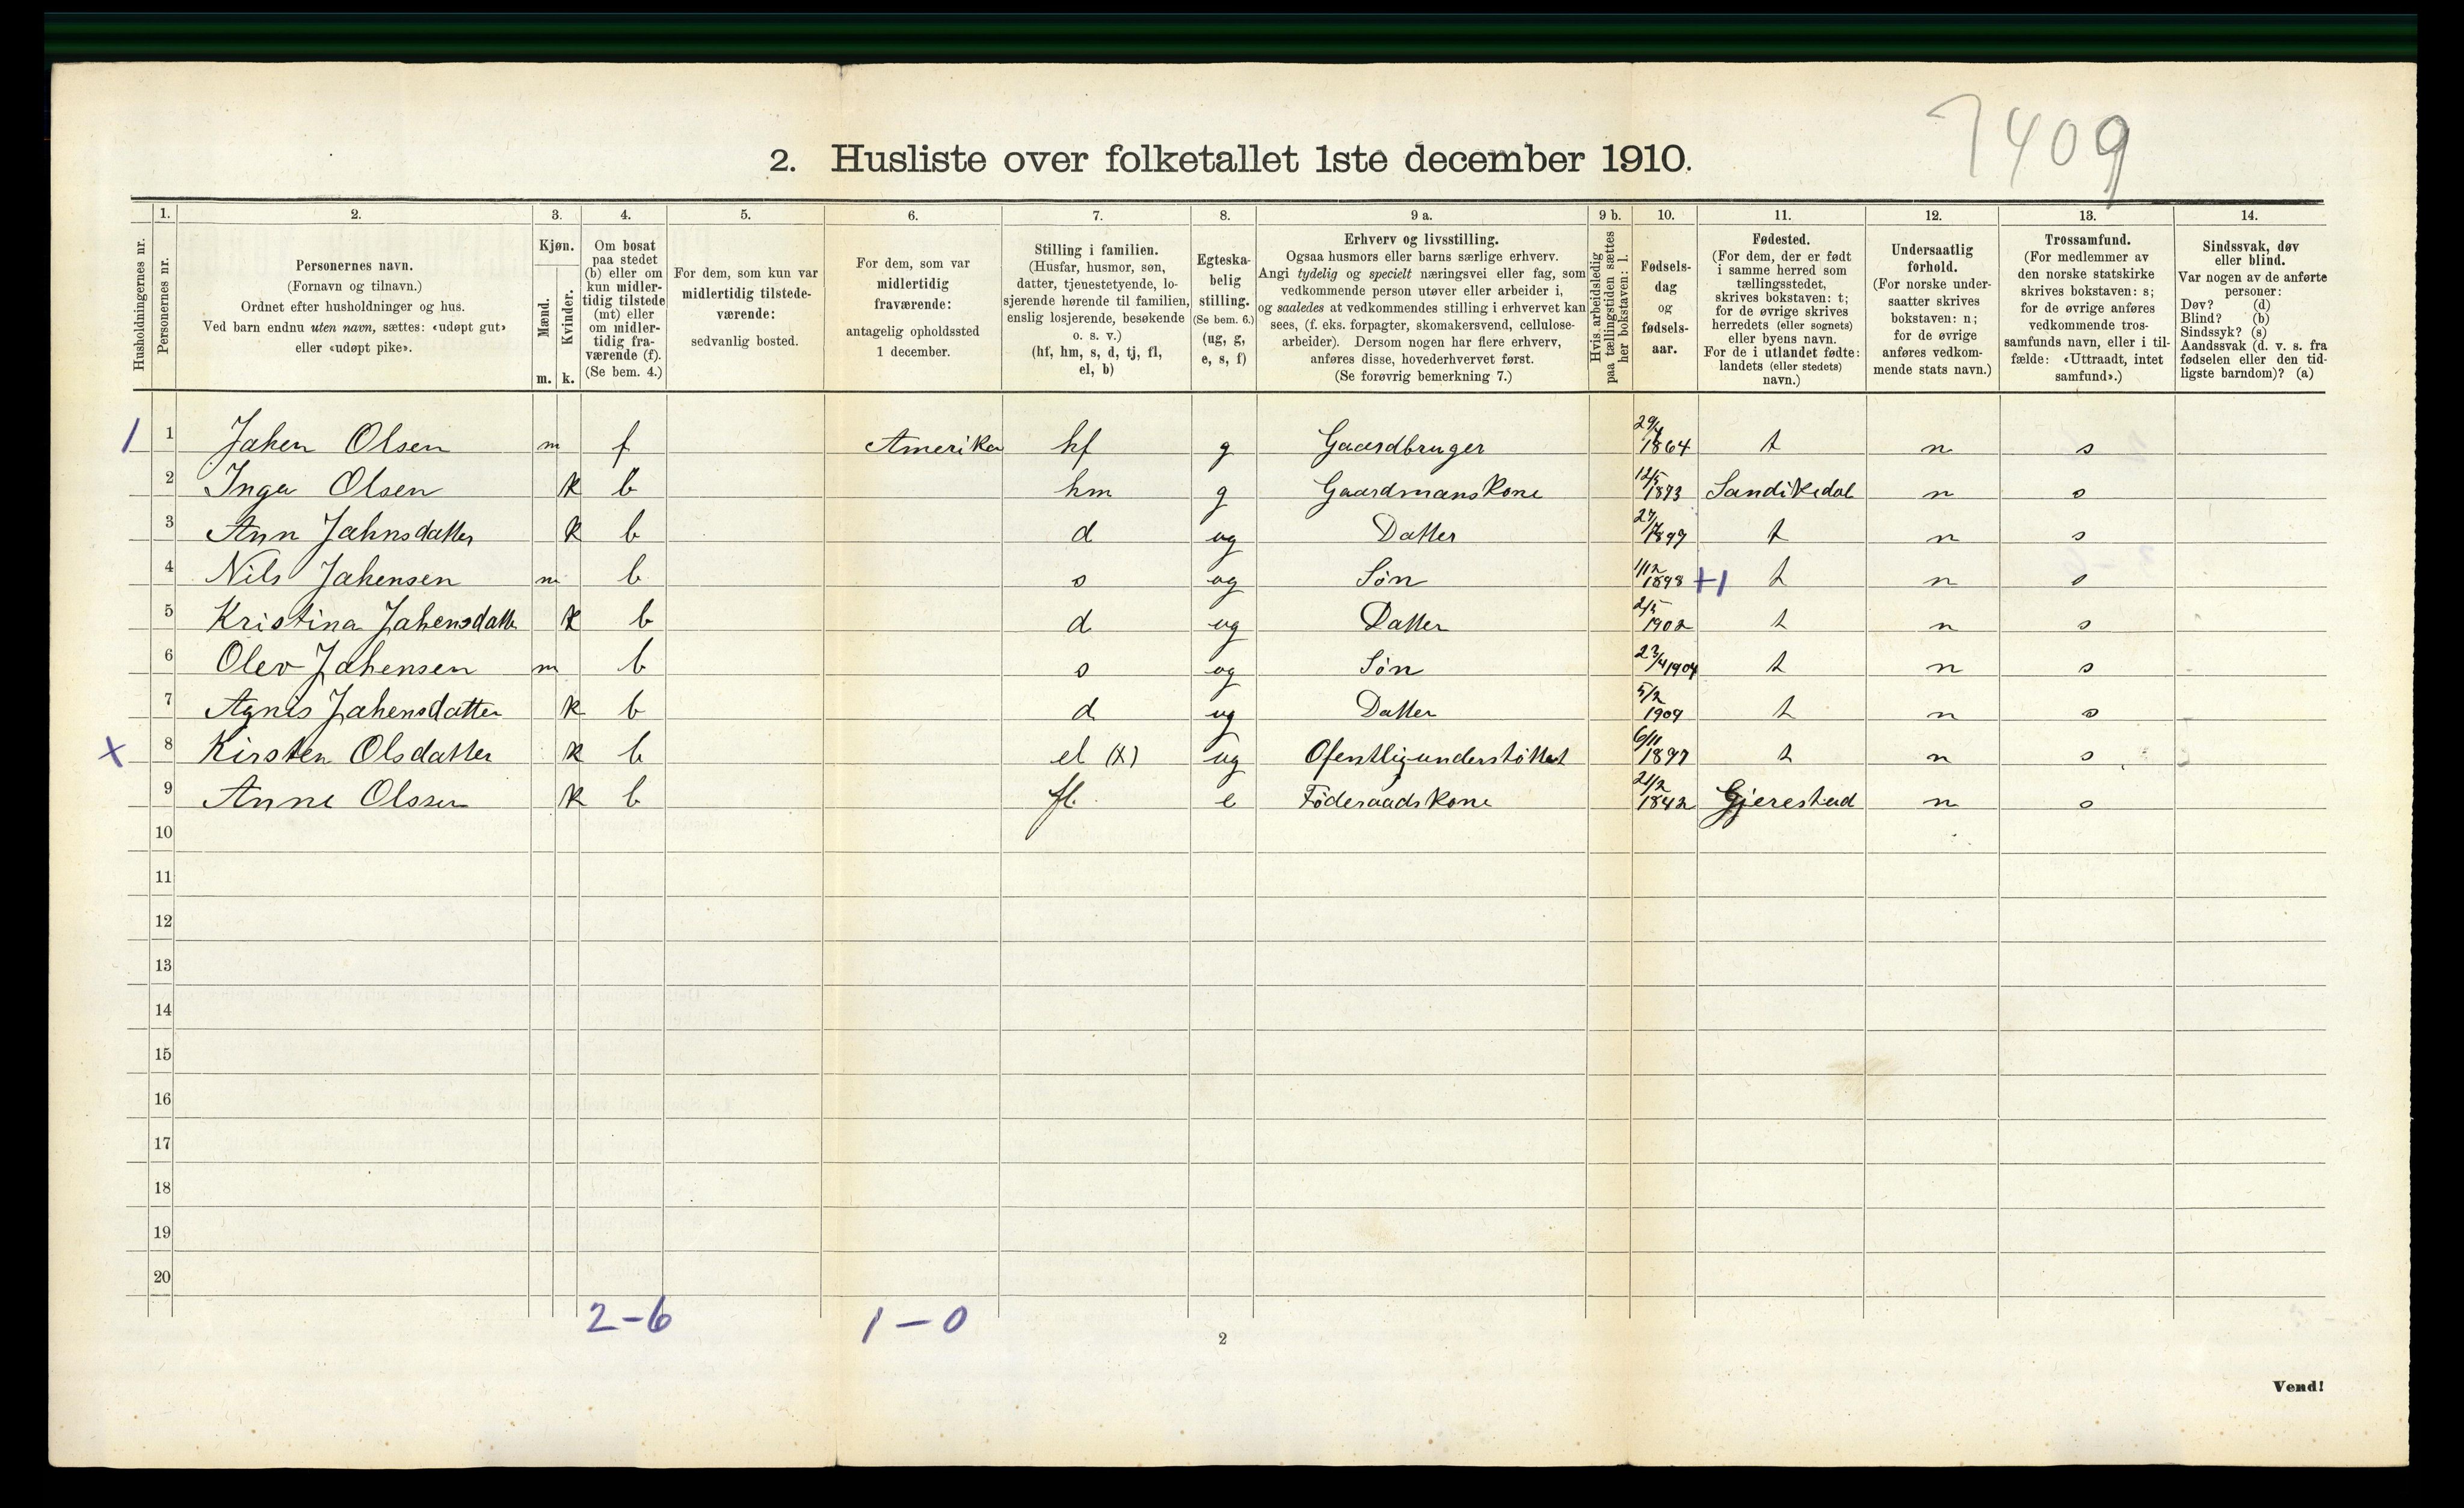 7409
2. Husliste over folketallet 1ste december 1910.
1. 2. 3. 4. 5. 6. 7. 8. 9 a. 9 b. 10. 11. 12. 13. 14.
Husholdningernes nr.
Personernes nr.
Personernes navn.
(Fornavn og tilnavn.)
Ordnet efter husholdninger og hus.
Ved barn endnu uten navn, sættes: «udøpt gut»
eller «udøpt pike».
Kjøn.
Mænd.
Kvinder.
m. k.
Om bosat
paa stedet
(b) eller om
kun midler-
tidig tilstede
(mt) eller
om midler-
tidig fra-
værende (f).
(Se bem. 4.)
For dem, som kun var
midlertidig tilstede-
værende:
sedvanlig bosted.
For dem, som var
midlertidig
fraværende:
antagelig opholdssted
1 december.
Stilling i familien.
(Husfar, husmor, søn,
datter, tjenestetyende, lo-
sjerende hørende til familien,
enslig losjerende, besøkende
o. s. v.)
(hf, hm, s, d, tj, fl,
el, b)
Egteska-
belig
stilling.
(Se bem. 6.)
(ug, g,
e, s, f)
Erhverv og livsstilling.
Ogsaa husmors eller barns særlige erhverv.
Angi tydelig og specielt næringsvei eller fag, som
vedkommende person utøver eller arbeider i,
og saaledes at vedkommendes stilling i erhvervet kan
sees, (f. eks. forpagter, skomakersvend, cellulose-
arbeider). Dersom nogen har flere erhverv,
anføres disse, hovederhvervet først.
(Se forøvrig bemerkning 7.)
Hvis arbeidsledig
paa tællingstiden sættes
her bokstaven: l.
Fødsels-
dag
og
fødsels-
aar.
Fødested.
(For dem, der er født
i samme herred som
tællingsstedet,
skrives bokstaven: t;
for de øvrige skrives
herredets (eller sognets)
eller byens navn.
For de i utlandet fødte:
landets (eller stedets)
navn.)
Undersaatlig
forhold.
(For norske under-
saatter skrives
bokstaven: n;
for de øvrige
anføres vedkom-
mende stats navn.)
Trossamfund.
(For medlemmer av
den norske statskirke
skrives bokstaven: s;
for de øvrige anføres
vedkommende tros-
samfunds navn, eller i til-
fælde: «Uttraadt, intet
samfund».)
Sindssvak, døv
eller blind.
Var nogen av de anførte
personer:
Døv? (d)
Blind? (b)
Sindssyk? (s)
Aandssvak (d. v. s. fra
fødselen eller den tid-
ligste barndom)? (a)
1 1 Jahen Olsen m f Amerika hf g Gaardbruger 29/4 1864 t n s
2 Inga Olsen k b hm g Gaardmanskone 12/5 1873 Sandikedal n s
3 Ann Jahnsdatter k b d ug Datter 1897 t n s
4 Nils Jahensen m b s ug Søn 1/12 1898 +1 t n s
5 Kristina Jahensdatte k b d ug Datter 2/5 1902 t n s
6 Olev Jahensen m b s ug Søn 23/4 1904 t n s
7 Agnis Jahensdatter k b d ug Datter 5/2 1909 t n s
x 8 Kirsten Olsdatter k b el (x) ug Ofentlig understøttet 6/11 t n s
9 Anne Olssen k b fl e Føderaadskone 21/2 1842 Gjerestad n s
10
11
12
13
14
15
16
17
18
19
20
2-6 1-0
2
Vend!